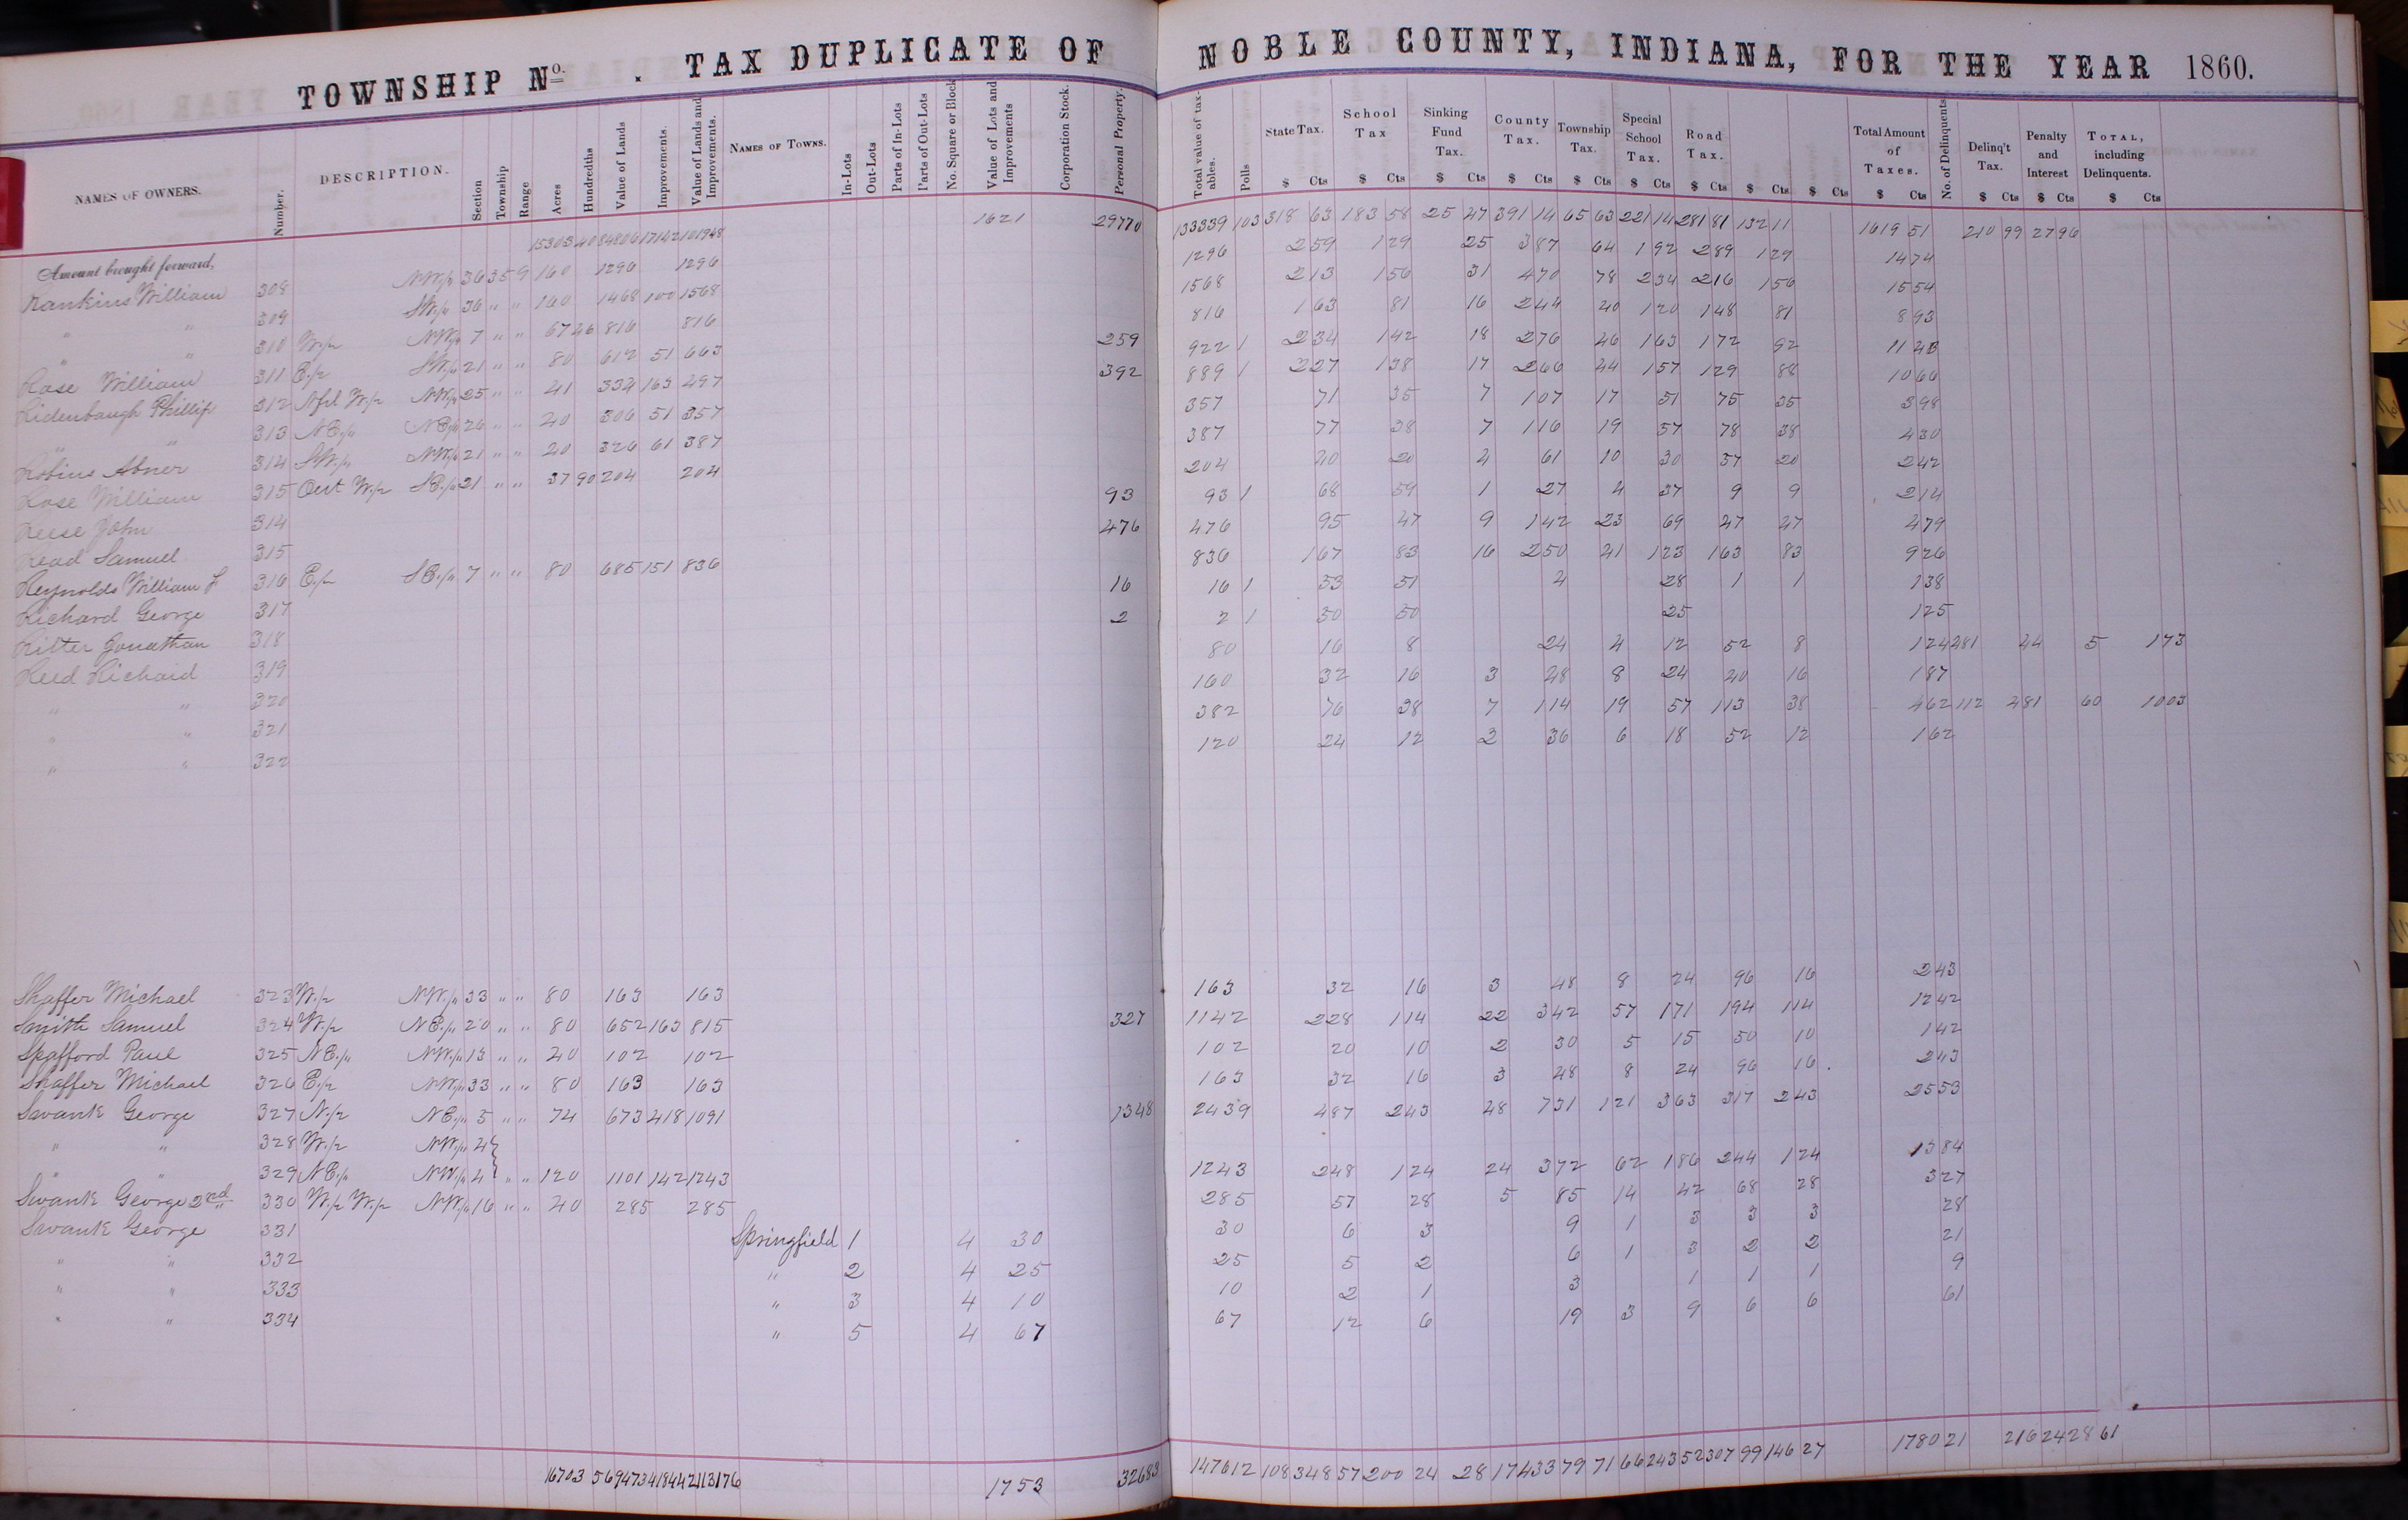 TOWNSHIP No. . TAX DUPLICATE OF NOBLE COUNTY, INDIANA, FOR THE YEAR 1860.
NAMES OF OWNERS. Number. DESCRIPTION. Section Township Range Acres Hundredths Value of Lands Improvements. Value of Lands and Improvements. NAMES OF TOWNS. In-Lots Out-Lots Parts of In-Lots Parts of Out-Lots No. Square or Block Value of Lots and Improvements Corporation Stock. Personal Property. Total value of taxables. Polls State Tax. School Tax Sinking Fund Tax. County Tax. Township Tax. Special School Tax. Road Tax. Total Amount of Taxes. No. of Delinquents Delinq't Tax. Penalty and Interest TOTAL, including Delinquents.
$ Cts $ Cts $ Cts $ Cts $ Cts $ Cts $ Cts $ Cts $ Cts $ Cts $ Cts $ Cts $ Cts
Amount brought forward, 15303 40 84806 17142 101948 1621 29770 133339 103 318 63 183 58 25 47 391 14 65 63 221 14 281 81 132 11 1619 51 210 99 27 96
Rankins William 308 NW/4 36 35 9 160 1296 1296 1296 259 129 25 387 64 192 289 129 1474
" " 309 SW/4 36 " " 160 1468 100 1568 1568 213 156 31 470 78 234 216 156 1554
" " 310 W/2 NW/4 7 " " 67 46 816 816 816 163 81 16 244 40 120 148 81 893
Rose William 311 E/2 SW/4 21 " " 80 612 51 663 259 922 1 234 142 18 276 46 163 172 92 1143
Ridenbaugh Phillip 312 Nfrl W/2 NW/4 25 " " 41 334 163 497 392 889 1 227 138 17 266 44 157 129 88 1066
" " 313 NE/4 NE/4 26 " " 40 306 51 357 357 71 35 7 107 17 51 75 35 398
Robins Abner 314 SW/4 NW/4 21 " " 40 326 61 387 387 77 38 7 116 19 57 78 38 430
Rose William 315 Out W/2 SE/4 21 " " 37 90 204 204 204 40 20 4 61 10 30 37 20 242
Reese John 314 93 93 1 68 59 1 27 4 37 9 9 214
Read Samuel 315 476 476 95 47 9 142 23 69 47 47 479
Reynolds William L 316 E/2 SE/4 7 " " 80 685 151 836 836 167 83 16 250 41 123 163 83 926
Richard George 317 16 16 1 53 51 4 28 1 1 138
Ritter Jonathan 318 2 2 1 50 50 25 125
Reed Richard 319 80 16 8 24 4 12 52 8 124 281 44 5 173
" " 320 160 32 16 3 48 8 24 40 16 187
" " 321 382 76 38 7 114 19 57 113 38 462 112 481 60 1003
" " 322 120 24 12 2 36 6 18 52 12 162
Shaffer Michael 323 W/2 NW/4 33 " " 80 163 163 163 32 16 3 48 8 24 96 16 243
Smith Samuel 324 W/2 NE/4 20 " " 80 652 163 815 327 1142 228 114 22 342 57 171 194 114 1242
Spafford Paul 325 NE/4 NW/4 13 " " 40 102 102 102 20 10 2 30 5 15 50 10 142
Shaffer Michael 326 E/2 NW/4 33 " " 80 163 163 163 32 16 3 48 8 24 96 16 243
Swank George 327 N/2 NE/4 5 " " 74 673 418 1091 1348 2439 487 243 48 731 121 363 317 243 2553
" " 328 W/2 NW/4 4
" " 329 NE/4 NW/4 4 " " 120 1101 142 1243 1243 248 124 24 372 62 186 244 124 1384
Swank George 2nd 330 W/2 W/2 NW/4 16 " " 40 285 285 285 57 28 5 85 14 42 68 28 327
Swank George 331 Springfield 1 4 30 30 6 3 9 1 3 3 3 28
" " 332 " 2 4 25 25 5 2 6 1 3 2 2 21
" " 333 " 3 4 10 10 2 1 3 1 1 1 9
" " 334 " 5 4 67 67 12 6 19 3 9 6 6 61
16703 56 94734 18442 113176 1753 32683 147612 108 348 57 200 24 28 17 433 79 71 66 243 52 307 99 146 27 1780 21 216 24 28 61